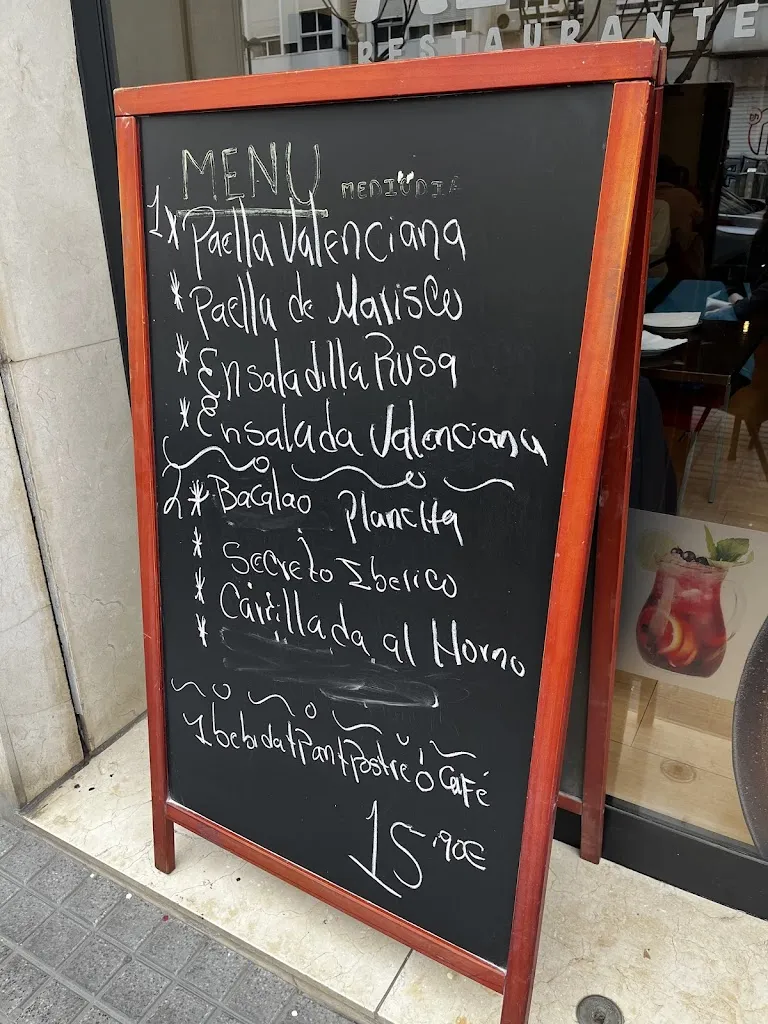 RESTAURANTE
MENU MEDIODIA
1* Paella Valenciana
* Paella de Marisco
* Ensaladilla Rusa
* Ensalada Valenciana
2* Bacalao Plancha
* Secreto Iberico
* Carrillada al Horno
*
1 bebida+Pan+Postre ó Café
15,90€